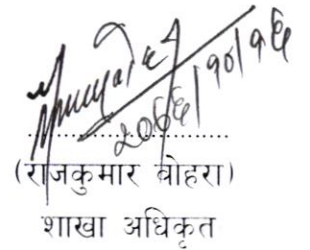 २०६६/१०/१६
(राजकुमार बोहरा)
शाखा अधिकृत